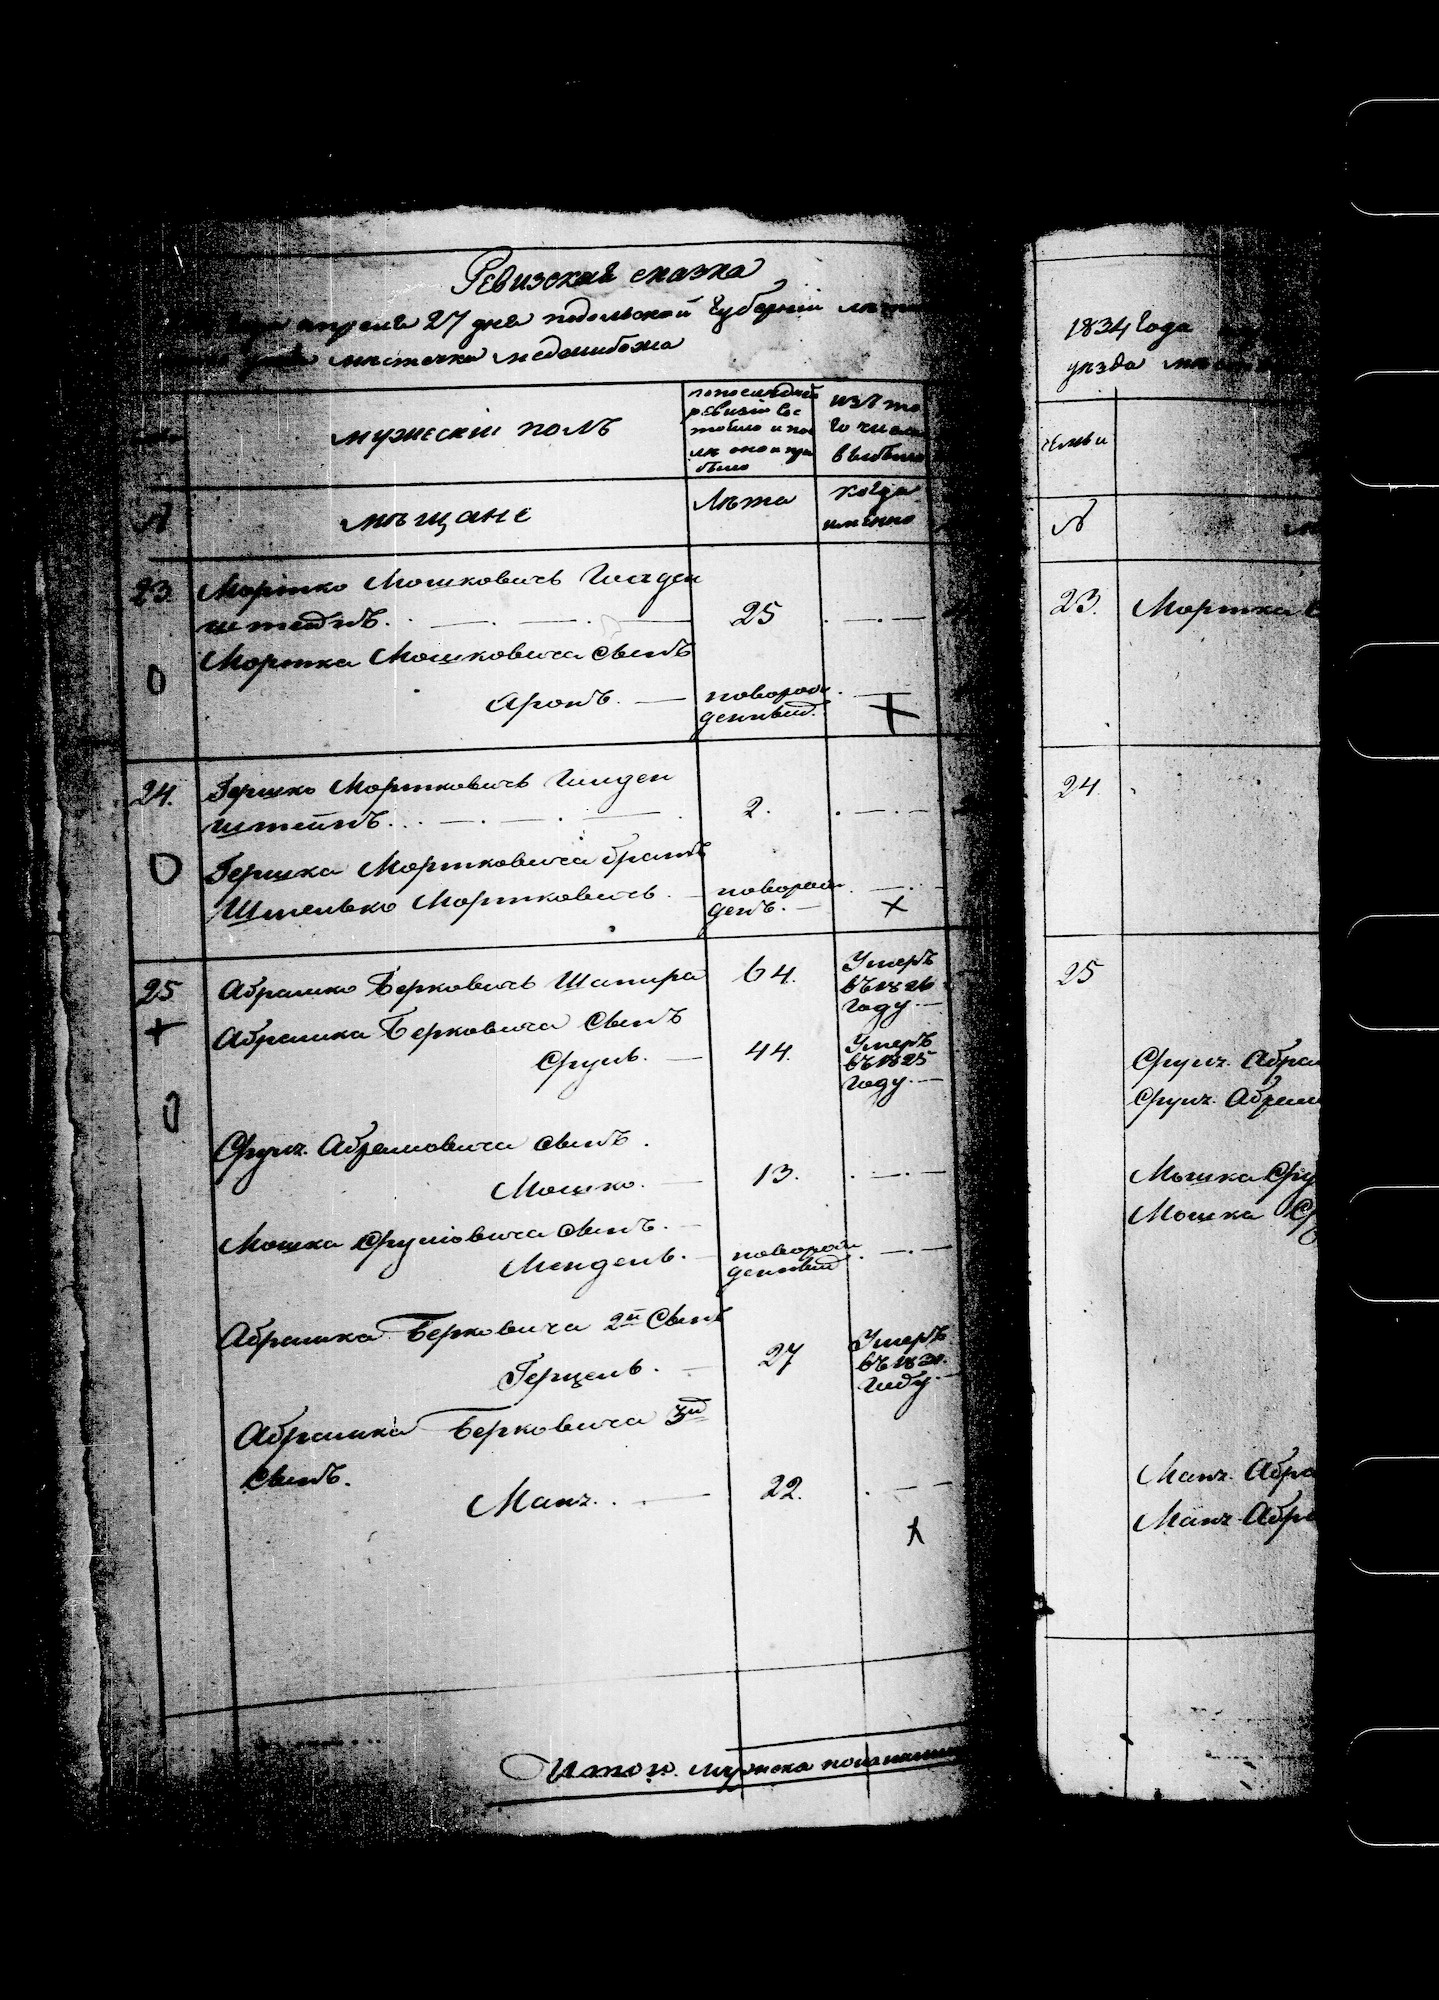 Ревизская сказка
апреля 27 дня подольской губерніи
местечка медожибожа
мужескій полъ
по последней
ревизіи сос
тояло и пос
ле того при
было
изъ то
го числа
выбыло
№
мещане
лета
когда
именно
23. Мортко Мошковичъ Гилден
штейнъ. 25
Мортка Мошковича сынъ
Аронъ. новорож
денный.
24. Гершко Мортковичъ Гилден
штейнъ. 2.
Гершка Мортковича братъ
Штелько Мортковичъ. новорож
денъ.
25 Абрамко Берковичъ Шапира 64. Умеръ
въ 1826
году.
Абрамка Берковича сынъ
Сруль. 44. Умеръ
въ 1825
году.
Сруля Абрамовича сынъ.
Мошко. 13.
Мошка Срулёвича сынъ.
Мендель. новорож
денный
Абрамка Берковича 2й сынъ
Герцель. 27 Умеръ
въ
году.
Абрамка Берковича 3й
сынъ.
Маня. 22.
Итого. мужеска пола
1834 года
уезда
семьи
№
23. Мортка
24.
25
Сруля Абрам
Сруля Абрам
Мошка Сру
Мошка Ср
Маня Абра
Маня Абра